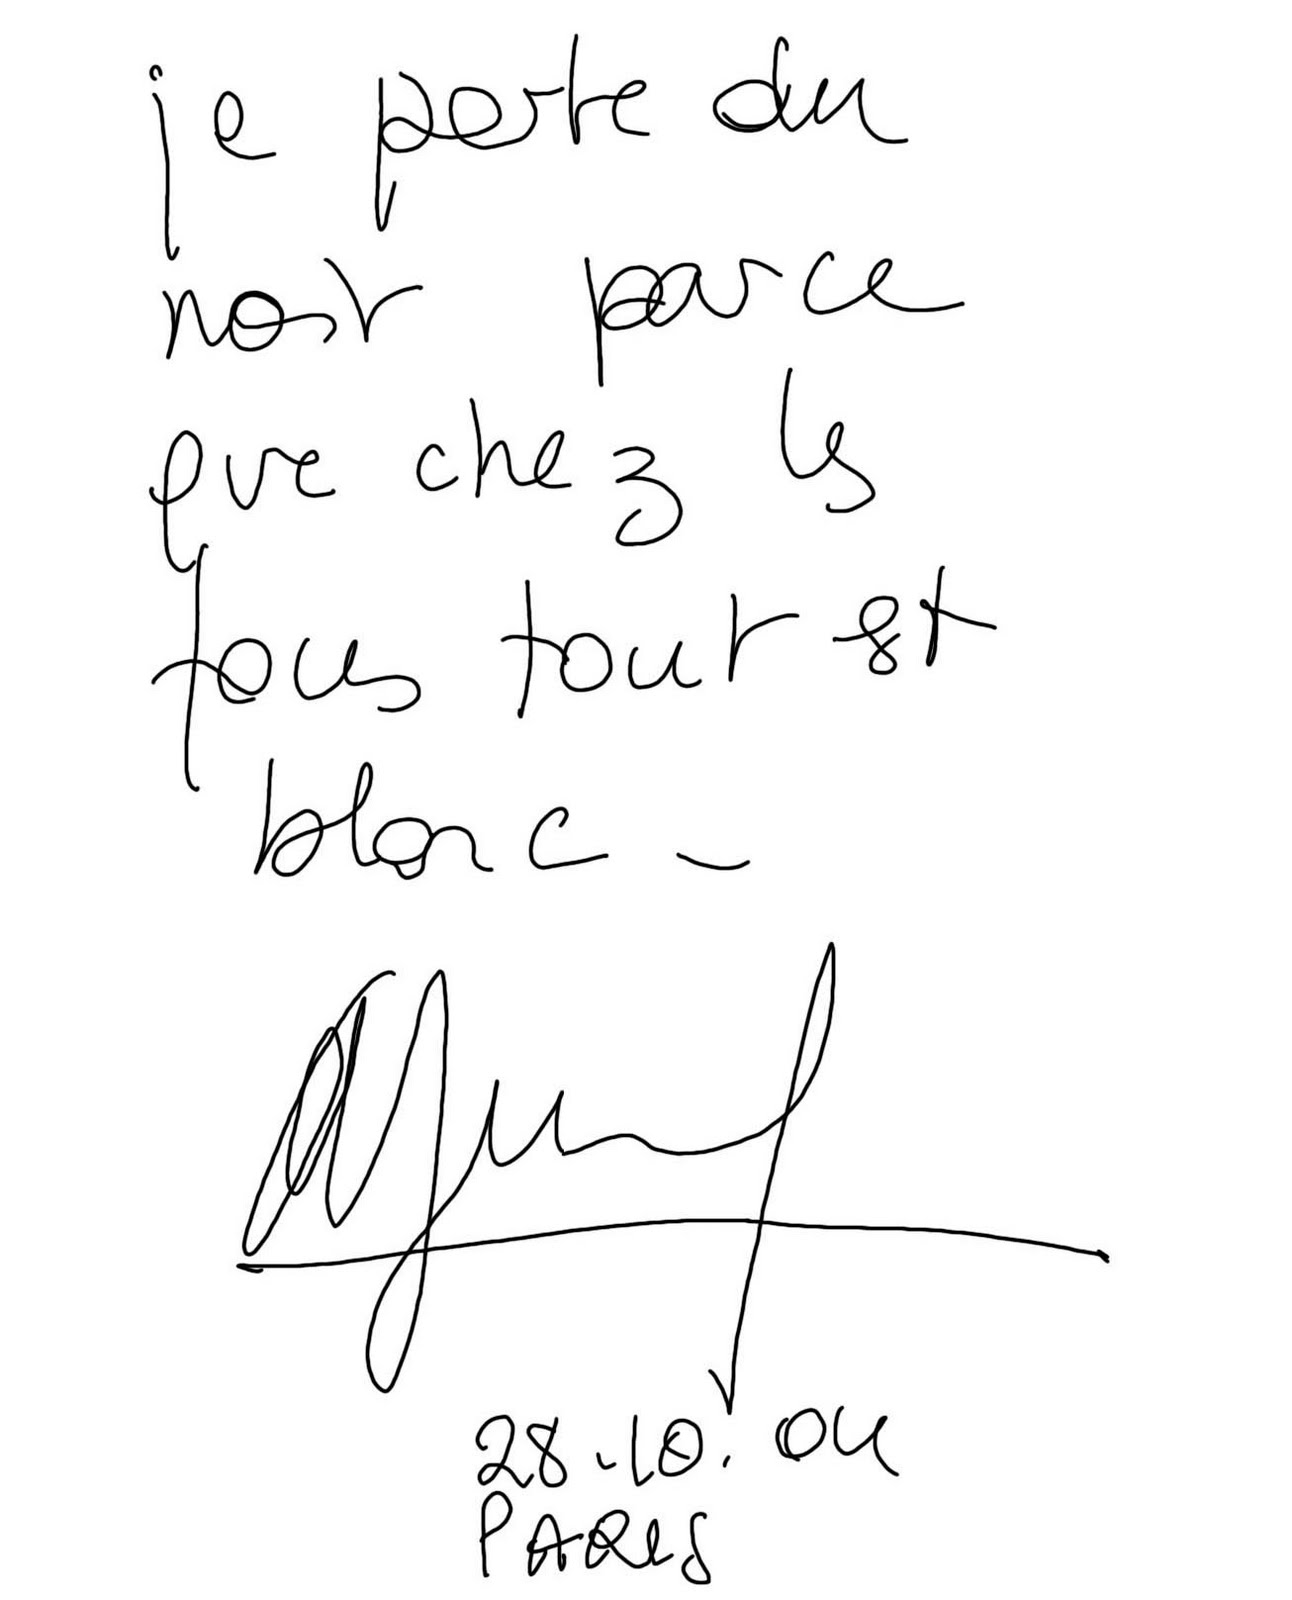 je porte du
noir parce
que chez les
fous tout est
blanc -
28.10.04
PARIS